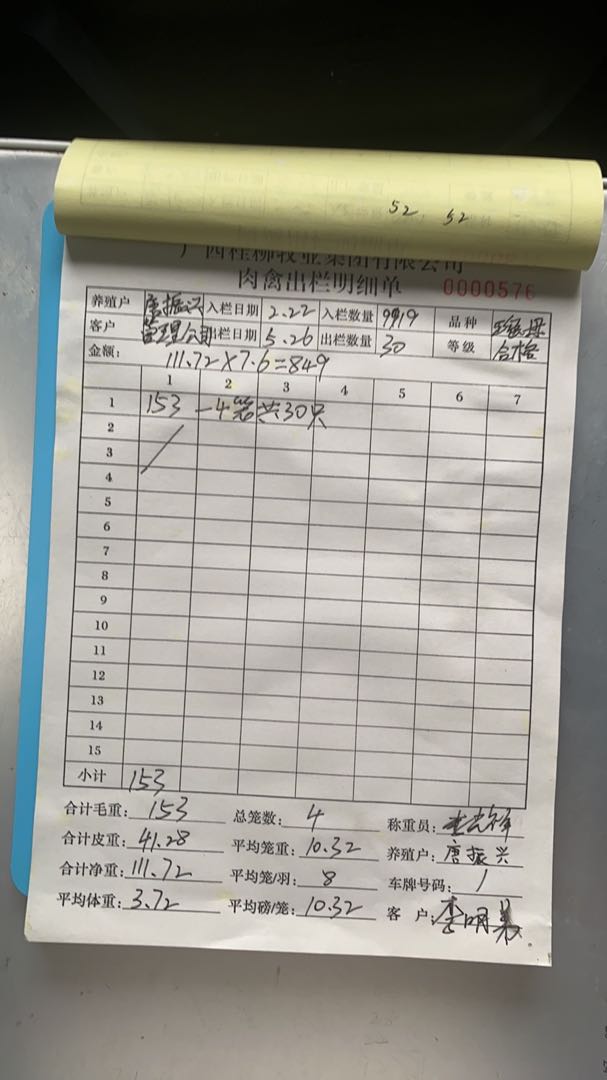 52 52
广西桂柳牧业集团有限公司
肉禽出栏明细单 0000576
养殖户 唐振兴 入栏日期 2.22 入栏数量 9919 品种
客户 管理公司 出栏日期 5.26 出栏数量 30 等级 合格
金额: 111.72×7.6=849
1 2 3 4 5 6 7
1 153 -4笼 共30只
2
3
4
5
6
7
8
9
10
11
12
13
14
15
小计 153
合计毛重: 153 总笼数: 4 称重员:
合计皮重: 41.28 平均笼重: 10.32 养殖户: 唐振兴
合计净重: 111.72 平均笼/羽: 8 车牌号码: /
平均体重: 3.72 平均磅/笼: 10.32 客 户: 李明